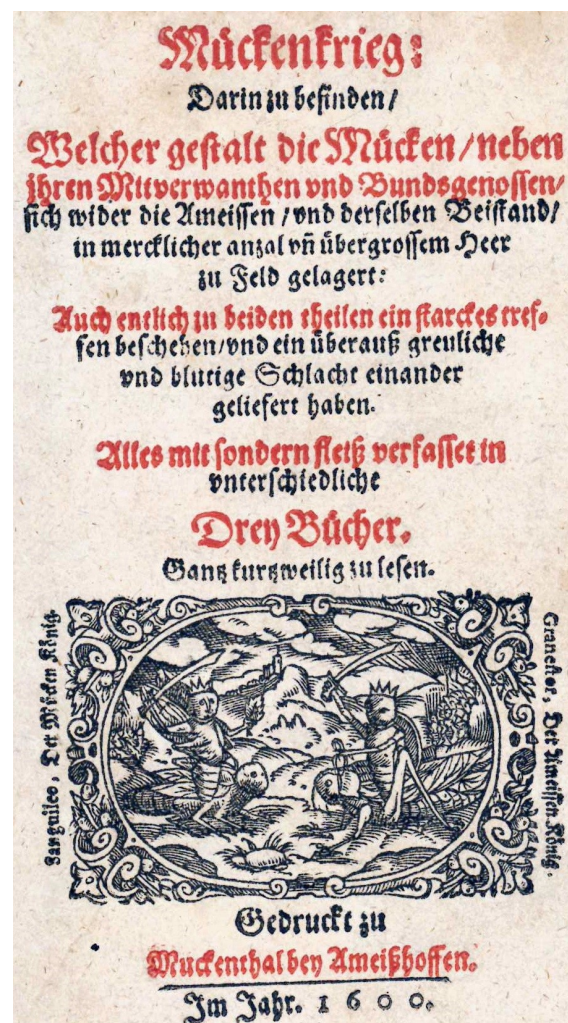 Mückenkrieg:
Darin zu befinden/
Welcher gestalt die Mücken/neben
jhren Mitverwanthen vnd Bundsgenossen/
sich wider die Ameissen/vnd derselben Beistand/
in mercklicher anzal vñ übergrossem Heer
zu Feld gelagert:
Auch entlich zu beiden theilen ein starckes tref-
fen beschehen/vnd ein überauß greuliche
vnd blutige Schlacht einander
geliefert haben.
Alles mit sondern fleiß verfasset in
vnterschiedliche
Drey Bücher.
Gantz kurtzweilig zu lesen.
Sanguileo, Der Mücken König.
Granestor, Der Ameissen König.
Gedruckt zu
Muckenthal bey Ameißhoffen.
Im Jahr. 1600.